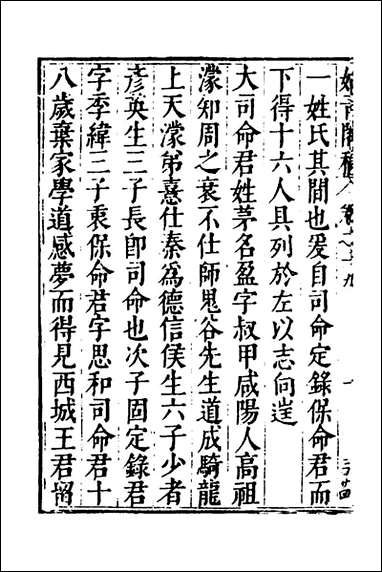 一姓氏其間也爰自司命定錄保命君而
下得十六人具列於左以志向逞
大司命君姓茅名盈字叔甲咸陽人高祖
濛知周之衰不仕師鬼谷先生道成騎龍
上天濛弟憙仕秦為德信侯生六子少者
彥英生三子長卽司命也次子固定錄君
字季緯三子衷保命君字思和司命君十
八歲棄家學道感夢而得見西城王君留